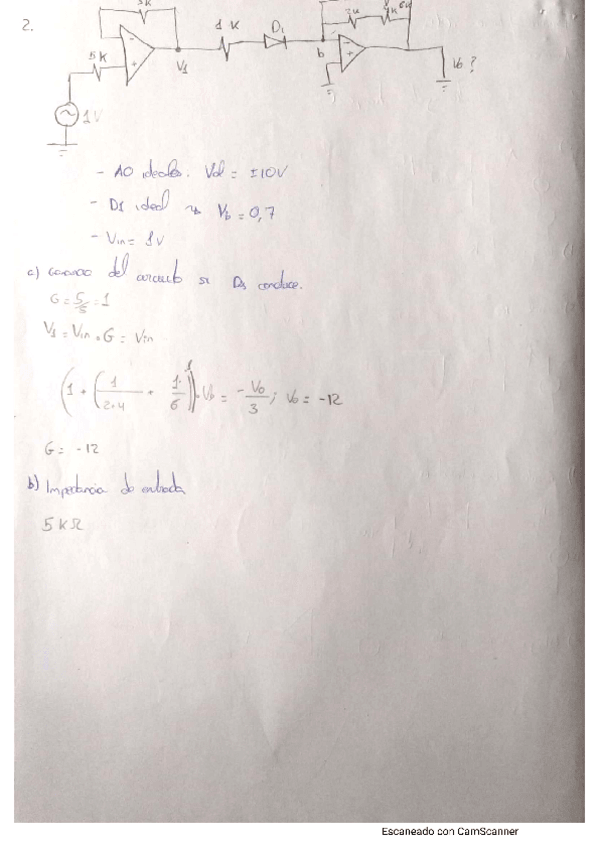 2.
5K
1 K
D1
2K
6K
5K
V1
b
Vo ?
1V
- AO ideales. Vsal = ±10V
- D1 ideal → Vb = 0,7
- Vin = 1V
a) Ganancia del circuito si D1 conduce.
G = 5/5 = 1
V1 = Vin . G = Vin
(1 + (1/2+4 + 1/6)) . Vb = -Vo/3 ; Vo = -12
G = -12
b) Impedancia de entrada
5 KΩ
Escaneado con CamScanner